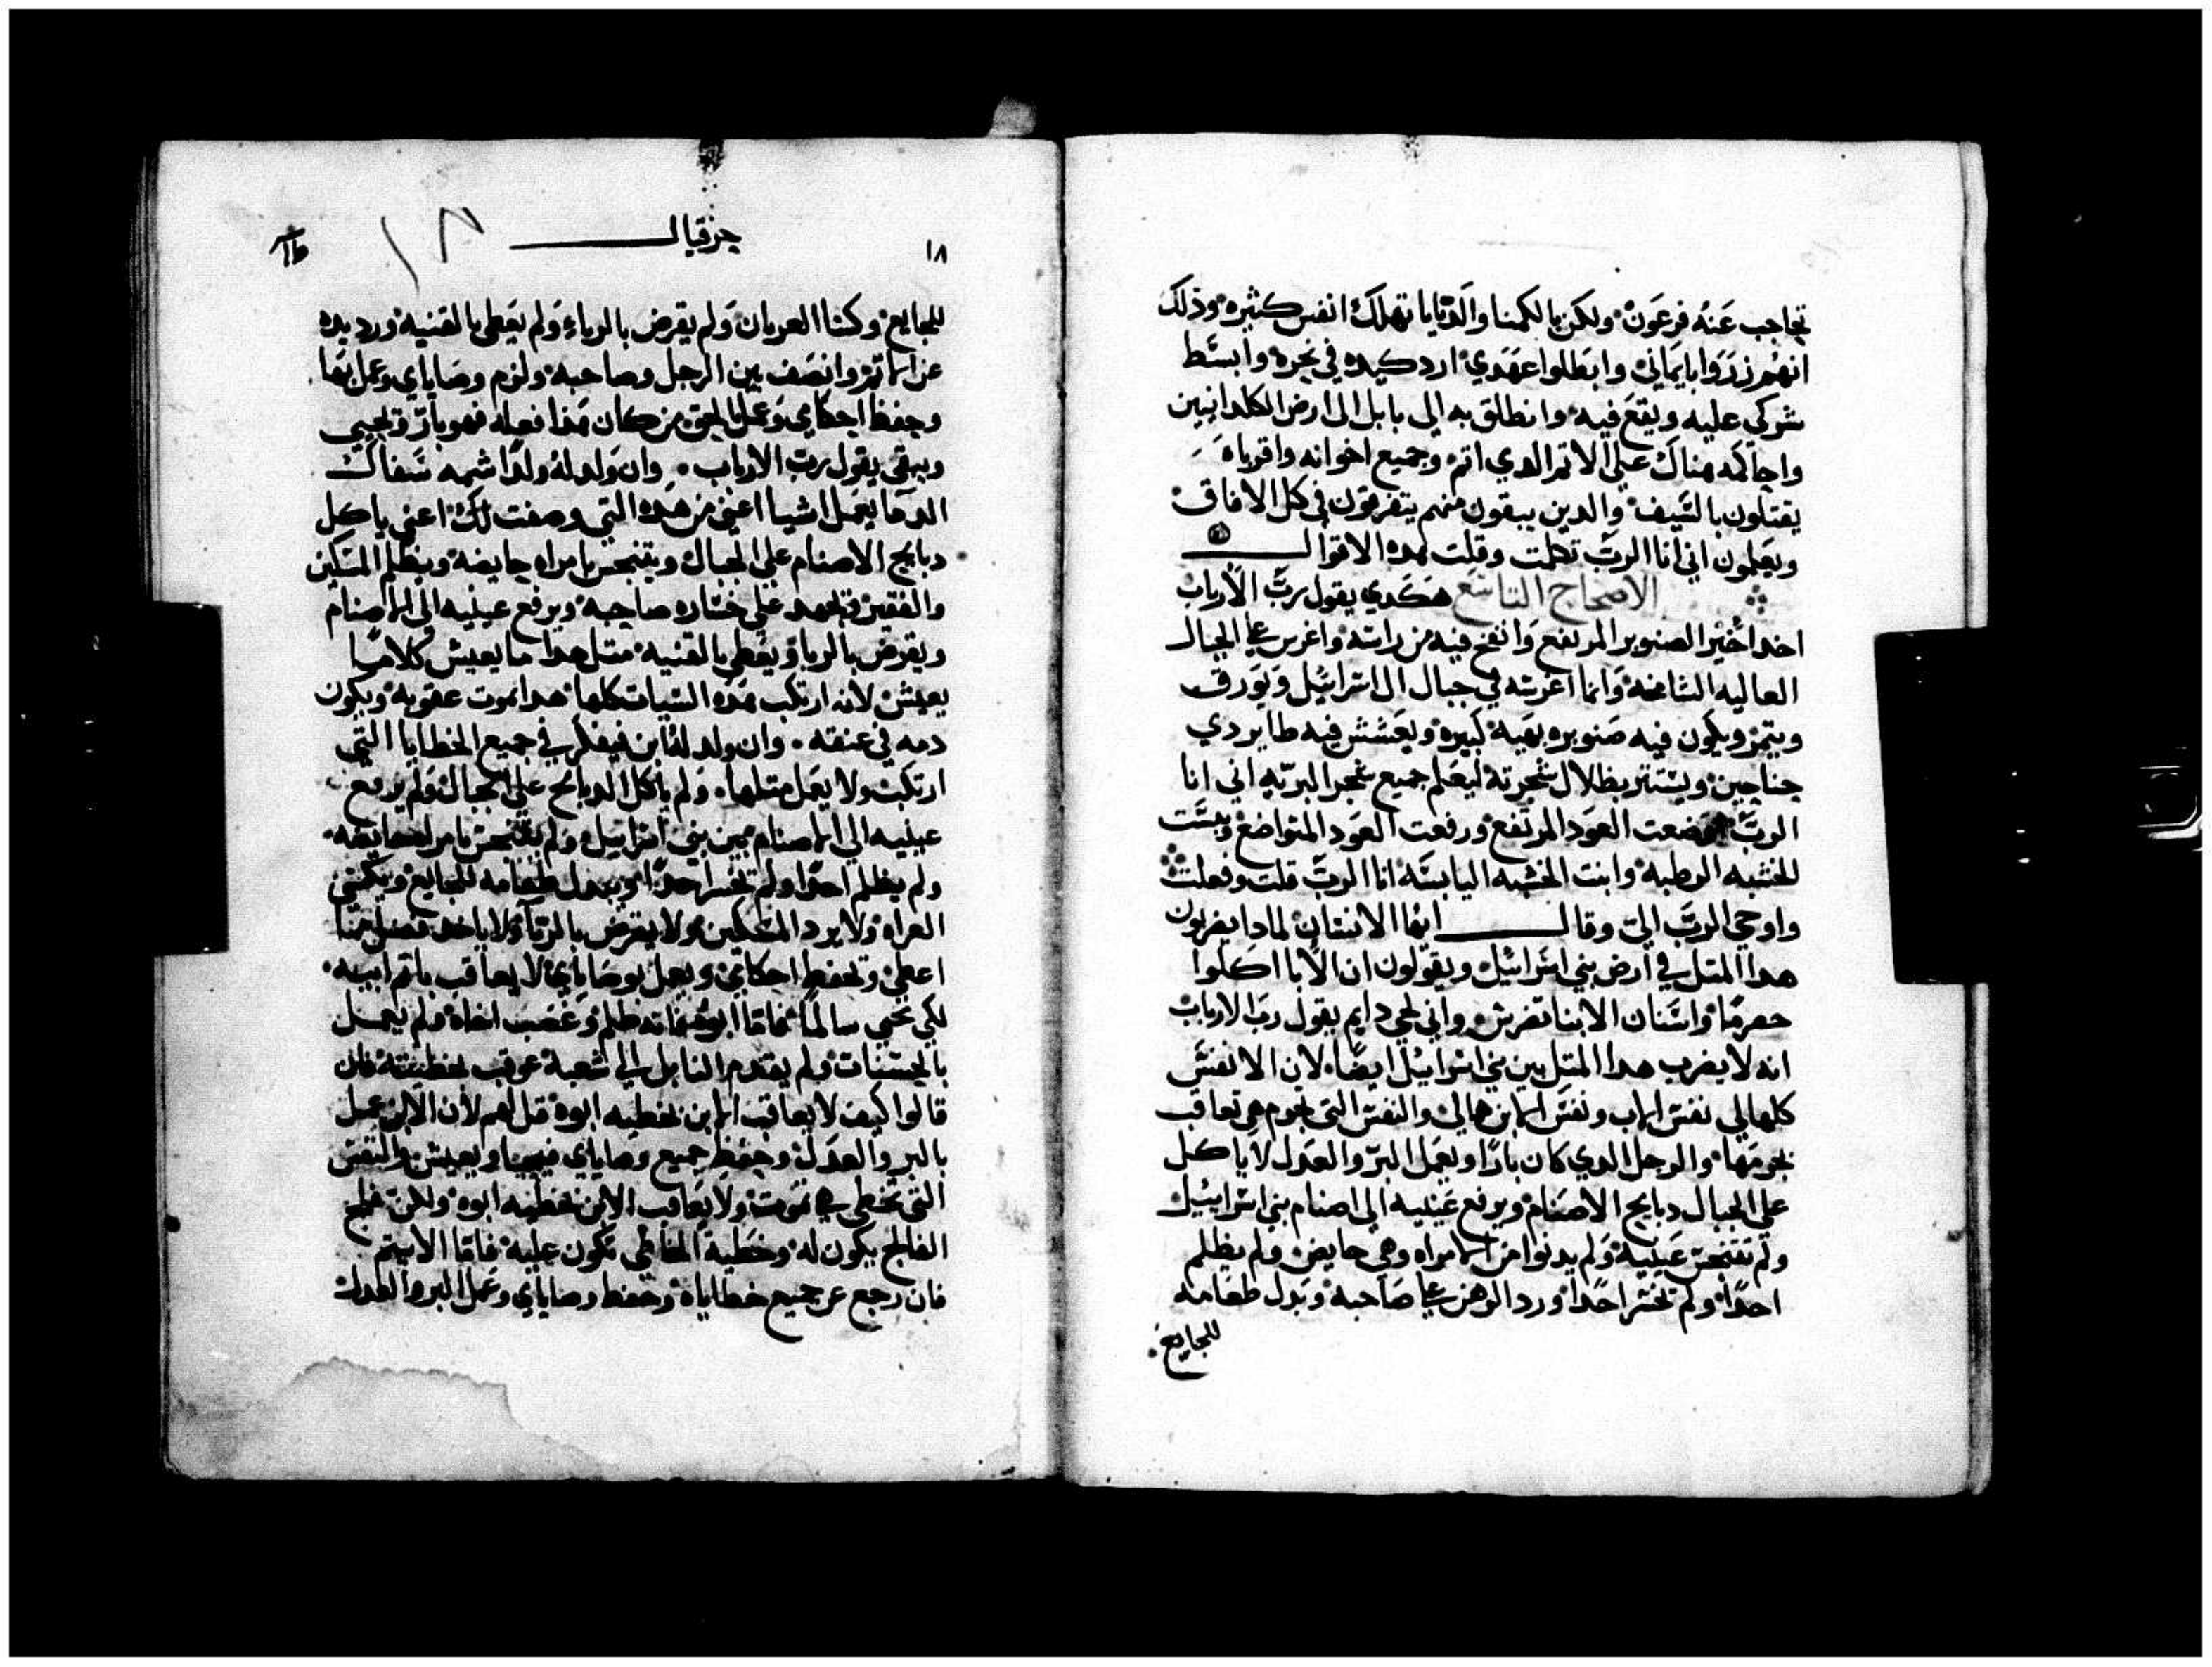 تحاجب عنه فرعون ولكن بالكمنا والدبابا تهلك انفس كثيره وذلك
انهم زدروا بايماني وابطلوا عهدي اردكيده في نحره وابسط
شركي عليه ويقع فيه وانطلق به الى بابل الى ارض الكلدانيين
واحاكمه هناك على الاتم الدي اتم وجميع اخوانه واقرباه
يقتلون بالسيف والدين يبقون منهم يتفرقون في كل الافاق
ويعلمون اني انا الرب تكلمت وقلت هده الاقوال
الاصحاح التاسع هكدي يقول رب الارباب
احد اخير الصنوبر المرتفع وانفخ فيه من راسه واغرس على الجبال
العاليه الشامخه وانما اغرسه في جبال ال اسرائيل ويورق
ويتمر ويكون فيه صنوبره بهيه كبيره ويعشش فيه طاير دي
جناحين ويستتر بظلال شجرته ليعلم جميع شجر البريه اني انا
الرب وضعت العود المرتفع ورفعت العود المتواضع ويبست
الخشبه الرطبه وانبت الخشبه اليابسه انا الرب قلت وفعلت
واوحي الرب الي وقال ايها الانسان لمادا يضربون
هدا المتل في ارض بني اسرائيل ويقولون ان الابا اكلوا
حصرما واسنان الابنا تضرس واني لحي دايم يقول رب الارباب
انه لا يضرب هدا المتل بين بني اسرائيل ايضا لان الانفس
كلها لي نفس الاب ونفس الابن هما لي والنفس التي تجرم هي تعاقب
بجرمها والرجل الدي كان بارا ويعمل البر والعدل لا ياكل
على الجبال دبايح الاصنام ويرفع عينيه الى اصنام بني اسرائيل
ولم تتنجس عينيه ولم يدنوا من امراه وهي حايض ولم يظلم
احدا ولم يخسر احدا ورد الرهن على صاحبه وبدل طعامه
للجايع
١٨ حزقيال ١٨
للجايع وكسا العريان ولم يقرض بالرباء ولم يعطي بالقنيه ورد يده
عن الاتم وانصف بين الرجل وصاحبه ولزم وصاياي وعمل بها
وحفظ احكامي وعمل بالحق من كان هدا فعله فهو بار ويحيي
ويبقى يقول رب الارباب وان ولد له ولدا شمه سفاك
الدما يعمل اشيا اعني من هده التي وصفت لك اعني ياكل
دبايح الاصنام على الجبال ويتنجس بامراه حايضه ويظلم المسكين
والفقير على خساره صاحبه ويرفع عينيه الى الاصنام
ويقرض بالربا ويعطي بالقنيه متل هدا ما يعيش كلا ما
يعيش لانه ارتكب هده السيات كلها هدا يموت عقوبه ويكون
دمه في عنقه وان ولد له ابن فيفكر في جميع الخطايا التي
ارتكبت ولا يعمل متلها ولم ياكل الدبايح على الجبال ولم يرفع
عينيه الى الاصنام بين بني اسرائيل ولم يتنجس بامراه حايضه
ولم يظلم احدا ولم يخسر احدا ويبدل طعامه للجايع ويكسي
العراه ولا يرد المسكين ولا يقرض بالربا ولا ياخد فضل مما
اعطي وتحفظ احكامي ويعمل بوصاياي لا يعاقب باتم ابيه
لكي يحيي سالما فاما ابوه فانه ظلم وغصب اخاه ولم يعمل
بالحسنات ولم يقدم النايل الى شعبه عوقب بخطيته فان
قالوا كيف لا يعاقب الابن بخطيه ابوه قل لهم لان الابن عمل
بالبر والعدل وحفظ جميع وصاياي فيحيا ويعيش والنفس
التي تخطي هي تموت ولا يعاقب الابن بخطيه ابوه ولكن فلج
الفالح يكون له وخطية الخاطي تكون عليه فاما الاتيم
فان رجع عن جميع خطاياه وحفظ وصاياي وعمل البر والعدل